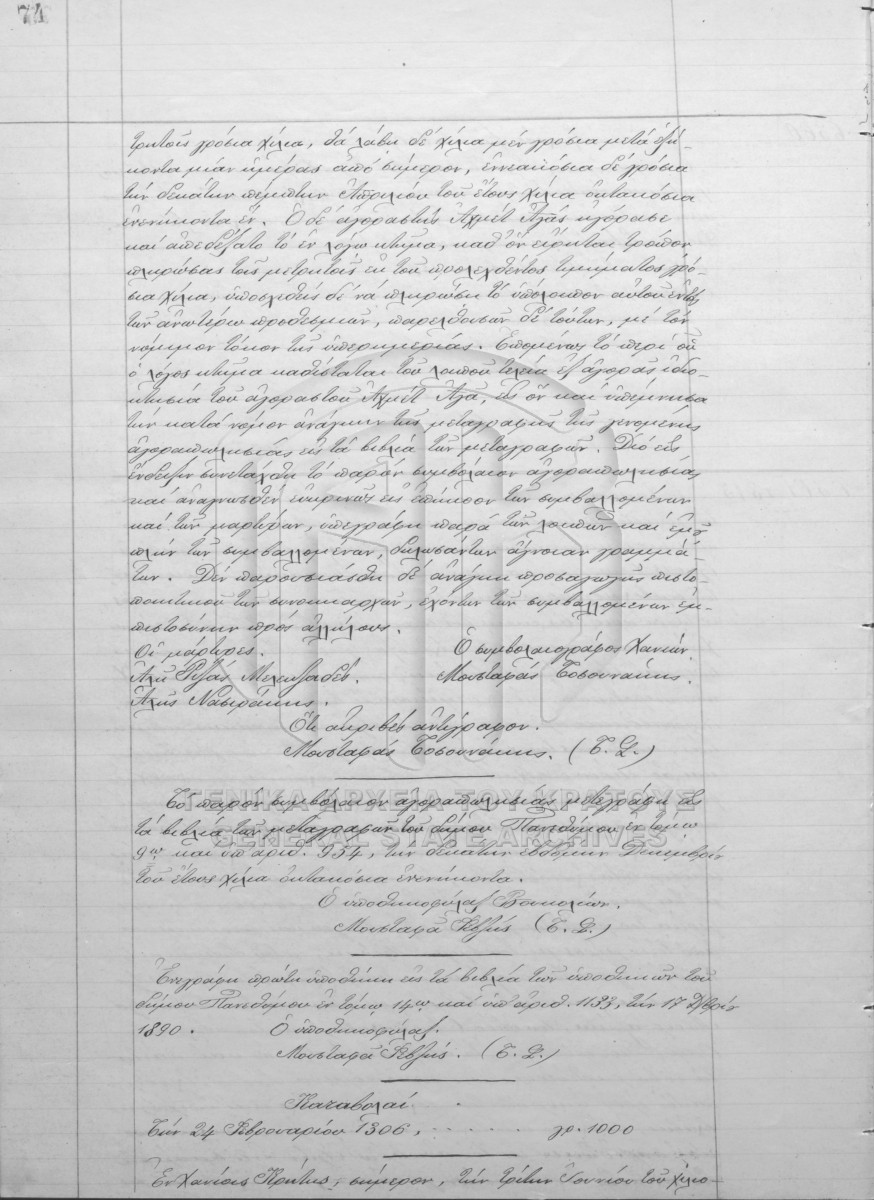 74
τρητοῖς γρόσια χίλια, θά λάβῃ δέ χίλια μέν γρόσια μετά ἑξή-
κοντα μίαν ἡμέρας ἀπό σήμερον, ἐννεακόσια δέ γρόσια
τήν δεκάτην πέμπτην Ἀπριλίου τοῦ ἔτους χίλια ὀκτακόσια
ἐνενήκοντα ἕν. Ὁ δέ ἀγοραστής Ἀχμέτ Ἀγᾶς ἠγόρασε
καί ἀπεδέξατο τό ἐν λόγῳ κτῆμα, καθ' ὅν εἴρηται τρόπον
πληρώσας τοῖς μετρητοῖς ἐκ τοῦ προλεχθέντος τιμήματος γρό-
σια χίλια, ὑποσχεθείς δέ νά πληρώσῃ τό ὑπόλοιπον αὐτοῦ ἐντός
τῶν ἀνωτέρω προθεσμιῶν, παρελθουσῶν δέ τούτων, μέ τόν
νόμιμον τόκον τῆς ὑπερημερίας. Ἑπομένως τό περί οὗ
ὁ λόγος κτῆμα καθίσταται τοῦ λοιποῦ τελεία ἐξ ἀγορᾶς ἰδιο-
κτησία τοῦ ἀγοραστοῦ Ἀχμέτ Ἀγᾶ, εἰς ὅν καί ὑπέμνησα
τήν κατά νόμον ἀνάγκην τῆς μεταγραφῆς τῆς γενομένης
ἀγοραπωλησίας εἰς τά βιβλία τῶν μεταγραφῶν. Διό εἰς
ἔνδειξιν συνετάχθη τό παρόν συμβόλαιον ἀγοραπωλησίας
καί ἀναγνωσθέν εὐκρινῶς εἰς ἐπήκοον τῶν συμβαλλομένων
καί τῶν μαρτύρων, ὑπεγράφη παρά τῶν λοιπῶν καί ἐμοῦ
πλήν τῶν συμβαλλομένων, δηλωσάντων ἄγνοιαν γραμμά-
των. Δέν παρουσιάσθη δέ ἀνάγκη προσαγωγῆς πιστο-
ποιητικοῦ τῶν συνοικαρχῶν, ἐχόντων τῶν συμβαλλομένων ἐμ-
πιστοσύνην πρός ἀλλήλους.
Οἱ μάρτυρες. Ὁ συμβολαιογράφος Χανίων.
Ἀλῆ Ριζᾶς Μελευζαδές. Μουσταφᾶς Τοσουνάκης.
Ἀλῆς Νασιράκης.
Ὅτι ἀκριβές ἀντίγραφον.
Μουσταφᾶς Τοσουνάκης. (Τ. Σ.)
Τό παρόν συμβόλαιον ἀγοραπωλησίας μετεγράφη εἰς
τά βιβλία τῶν μεταγραφῶν τοῦ δήμου Πανεθύμου ἐν τόμῳ
9ῳ καί ὑπ' ἀριθ. 954, τήν δεκάτην ἑβδόμην Δεκεμβρίου
τοῦ ἔτους χίλια ὀκτακόσια ἐνενήκοντα.
Ὁ ὑποθηκοφύλαξ Βουκολιῶν.
Μουσταφᾶ Φεβζῆς (Τ. Σ.)
Ἐνεγράφη πρώτη ὑποθήκη εἰς τά βιβλία τῶν ὑποθηκῶν τοῦ
δήμου Πανεθύμου ἐν τόμῳ 14ῳ καί ὑπ' ἀριθ. 1133, τήν 17 Δ/βρίου
1890. Ὁ ὑποθηκοφύλαξ.
Μουσταφᾶ Φεβζῆς. (Τ. Σ.)
Καταβολαί
Τήν 24 Φεβρουαρίου 1306, . . . . . γρ. 1000
Ἐν Χανίοις Κρήτης, σήμερον, τήν τρίτην Ἰουνίου τοῦ χίλια-
ΓΕΝΙΚΑ ΑΡΧΕΙΑ ΤΟΥ ΚΡΑΤΟΥΣ
GENERAL STATE ARCHIVES